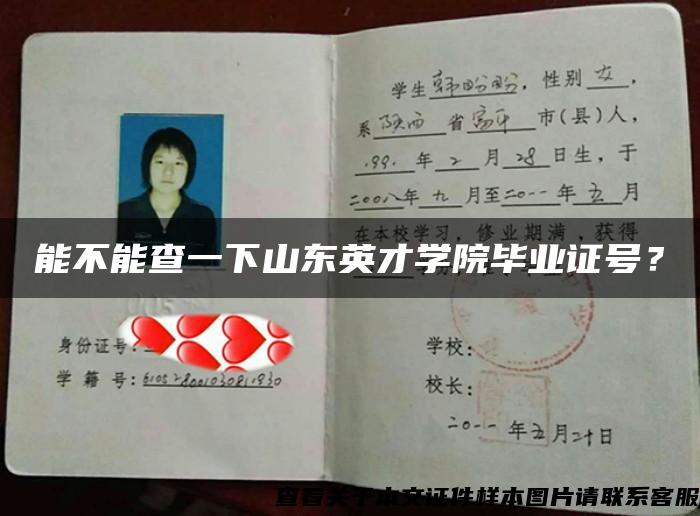 学生韩盼盼，性别女，
系陕西省富平市(县)人，
1991年2月28日生，于
二00八年九月至二0一一年五月
在本校学习，修业期满，获得
能不能查一下山东英才学院毕业证号？
身份证号：
学籍号：
学校：
校长：
二0一一年五月二十日
查看关于本文证件样本图片请联系客服